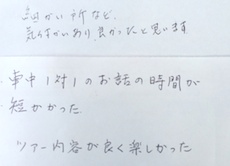 細かい所など、
気づかいあり、良かったと思います
・車中1対1のお話の時間が
・短かかった
ツアー内容が良く楽しかった